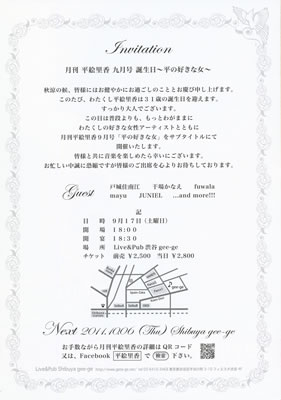 Invitation
月刊 平絵里香 九月号 誕生日〜平の好きな女〜
秋涼の候、皆様にはお健やかにお過ごしのこととお慶び申し上げます。
このたび、わたくし平絵里香は31歳の誕生日を迎えます。
すっかり大人でございます。
この日は普段よりも、もっとわがままに
わたくしの好きな女性アーティストとともに
月刊平絵里香9月号「平の好きな女」をサブタイトルにて
開催いたします。
皆様と共に音楽を楽しめたら幸いにございます。
お忙しい中誠に恐縮ですが皆様のご出席を心よりお待ちしております。
Guest
戸城佳南江 干場かなえ fuwala
mayu JUNIEL …and more!!!
記
日 時 9月17日(土曜日)
開 場 18:00
開 宴 18:30
場 所 Live&Pub 渋谷 gee-ge
チケット 前売 ¥2,500 当日 ¥2,800
gee-ge
Next 2011.10.06 (Thu) Shibuya gee-ge
お手数ながら月刊平絵里香の詳細はQRコード
又は、Facebook 平絵里香 で 検索 下さい。
Live&Pub Shibuya gee-ge